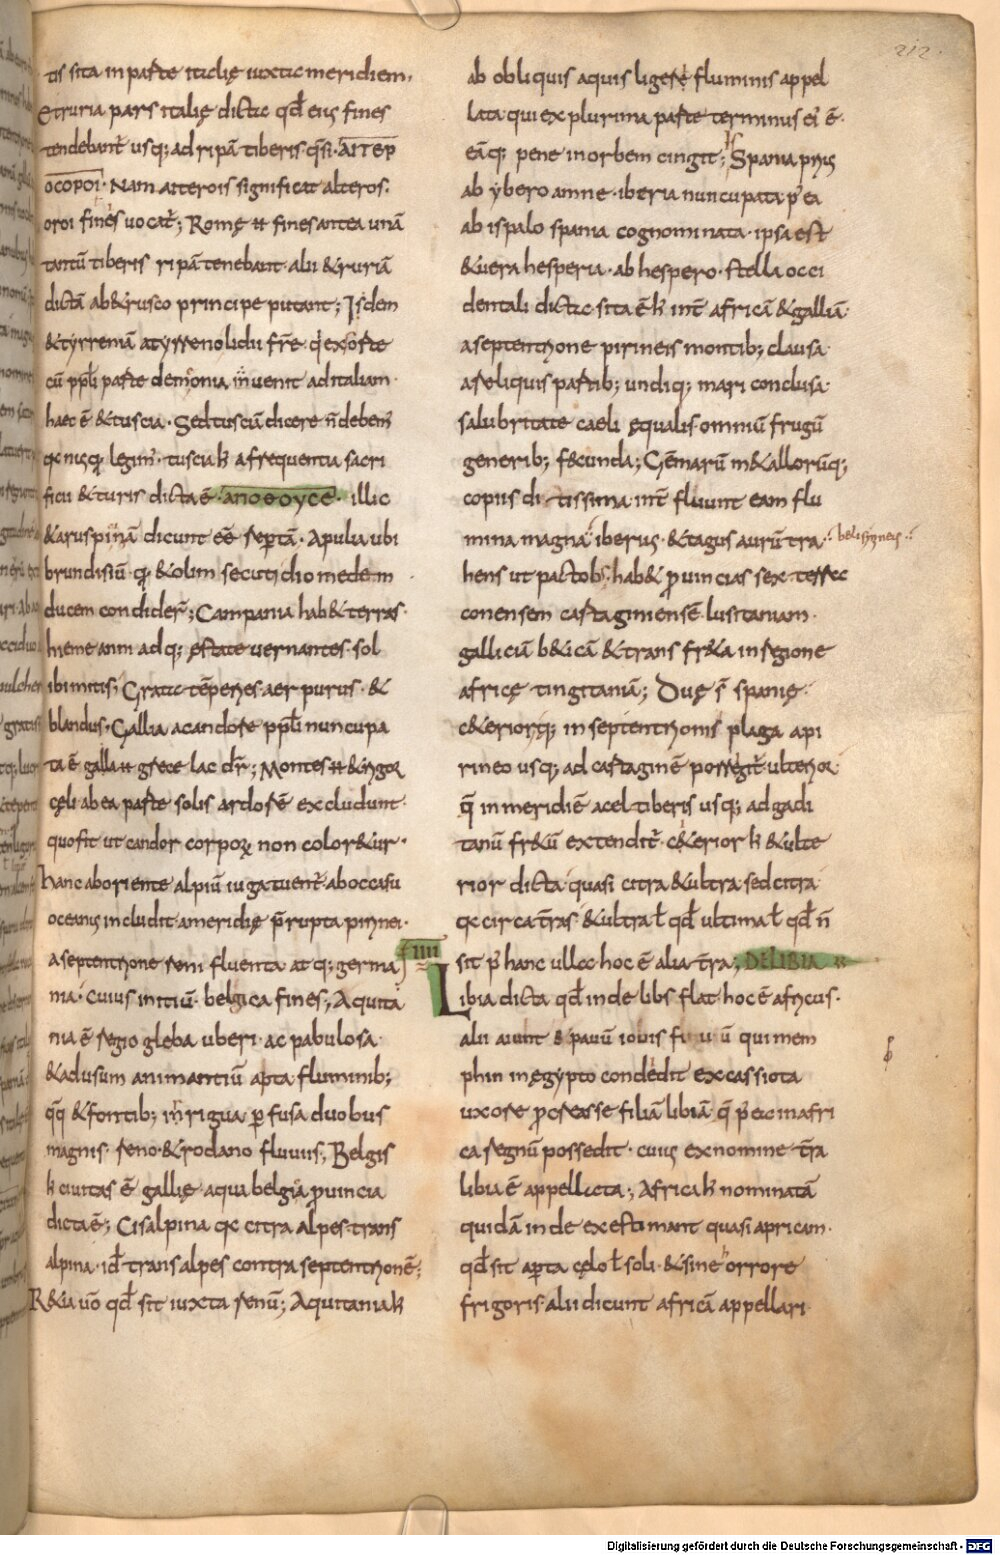 212.
tis sita in parte italię iuxta meridiem.
Etruria pars italię dicta qđ eius fines
tendebant̄ usq; ad ripā tiberis q̄si ΑΙΤΕΡ
ΟϹΟΡΟΙ. Nam aiterois significat alteros.
oroi fines uocat̄; Romę ꞇ fines antea unā
tantū tiberis ripā tenebant. alii &ruriā
dictā ab &rusco principe putant; Isdem
&tyrreniā a tyrreno lidii fr̄e. qi exorte
cū pp̄li parte demonia, inuenit ad italiam.
haec ē &tuscia. Sed tusciā dicere ñ debem̄
qa nusqā legim̄. tuscia h a frequentia sacri
ficii &turis dicta ē. ανοθογϲε. illic
&aruspinā dicunt eē reptā. Apulia ubi
brundisiū. qā &oli secuti diomedem
ducem condider̄; Campania hab& terras.
hieme anni adq; ęstate uernantes. sol
ibi mitis; Grata tēperies. aer purus. &
blandus. Gallia a candore pp̄li nuncupa
ta ē galla ꞇ grece lac dr̄; Montes ꞇ &rigor
cęli ab ea parte solis ardorē excludunt.
quo fit ut candor corporꝝ non color&ur.
hanc ab oriente alpiū iuga tuent̄. ab occasu
oceanus includit. a meridię p̄rupta pirinei.
a septentrione reni fluenta atq; germa
nia. cuius initiū belgica fines; Aquita
nia ē regio gleba uberi. ac pabulosa.
&ad usum animantiū apta fluminib;
q̄q &fontib; inrigua. perfusa duobus
magnis. reno. &rodano fluuiis; Belgis
h ciuitas ē gallię. a qua belgia prouincia
dicta ē; Cisalpina qa citra alpes. trans
alpina. id trans alpes contra septentrionē;
R&ia uo qđ sit iuxta renū; Aquitania h
ab obliquis aquis ligerę fluminis appel
lata. qui ex plurima parte terminus ei ē.
eāq; pene in orbem cingit; Spania prius
ab ybero amne. iberia nuncupata. p ea
ab ispalo spania cognominata. ipsa est
&uera hesperia. ab hespero. stella occi
dentali dicta. sita ē h int̄ africā &galliā.
a septentrione pirineis montib; clausa.
a reliquis partib; undiq; mari conclusa.
salubritate caeli ęqualis. omniū frugū
generib; fecunda; Gēmarū m&allorūq;
copiis ditissima. int̄ fluunt eam flu
mina magna iberus. &tagus aurū tra
hens ut pactolus. hab& prouincias sex terrac
conensem cartaginensē. lusitaniam.
galliciā b&icā &trans fr&a in regione
africę tingitaniā; Duę s̄ spanię.
c&eriorq; in septentrionis plaga a pi
rineo usq; ad cartaginē porrigit̄. ulterior
q̄ in meridiē a celtiberis usq; ad gadi
tanū fr&ū extendit̄. c&erior h &ulte
rior dicta quasi citra &ultra. sed citra
qa circa t̄ras. &ultra ł qđ ultima ł qđ ñ
IIII
sit p̄ hanc ulla hoc ē alia t̄ra; DE LIBIA
Libia dicta qđ inde libs flat. hoc ē africus.
alii aiunt epauū iouis filiū qui mem
phin in ęgypto condedit ex cassiota
uxore procreasse filiā libiā. q̄ p̄ea in afri
ca regnū possedit. cuius ex nomine t̄ra
libia ē appellata; Africa h nominatā
quidā inde exestimant quasi apricam.
qđ sit apta cęlo ł soli. &sine orrore
frigoris. alii dicunt africā appellari
Digitalisierung gefördert durch die Deutsche Forschungsgemeinschaft - DFG